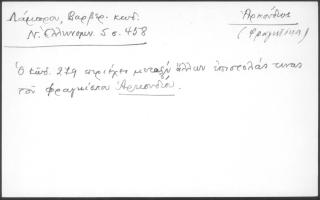 Λάμπρου, Βαρβερ. κωδ.
Ν. Ἑλληνομν. 5 σ. 458
Ἀρκούδιος
(Φραγκίσκος)
Ὁ κῶδ. 219 περιέχει μεταξὺ ἄλλων ἐπιστολάς τινας
τοῦ Φραγκίσκου Ἀρκουδίου.